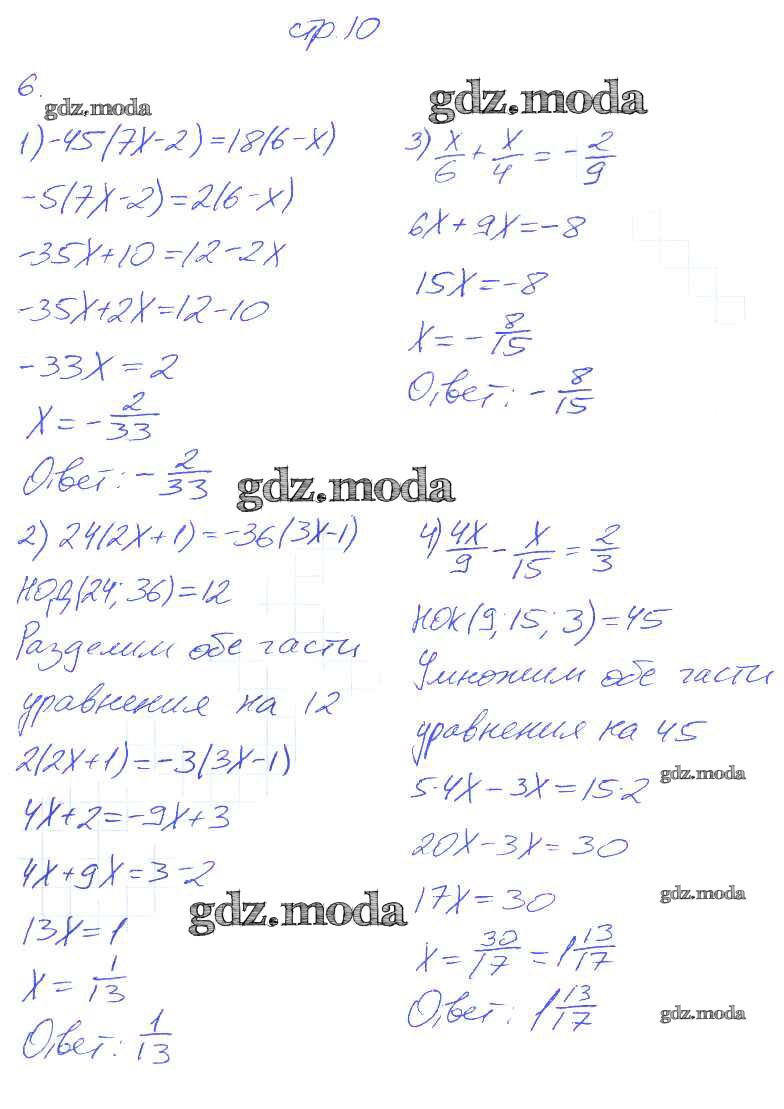 стр. 10
6.
gdz.moda
1) -45(7x-2)=18(6-x)
-5(7x-2)=2(6-x)
-35x+10=12-2x
-35x+2x=12-10
-33x=2
x=-2/33
Ответ: -2/33
gdz.moda
2) 24(2x+1)=-36(3x-1)
НОД(24; 36)=12
Разделим обе части
уравнения на 12
2(2x+1)=-3(3x-1)
4x+2=-9x+3
4x+9x=3-2
gdz.moda
13x=1
x=1/13
Ответ: 1/13
gdz.moda
3) x/6+x/4=-2/9
6x+9x=-8
15x=-8
x=-8/15
Ответ: -8/15
4) 4x/9-x/15=2/3
НОК(9; 15; 3)=45
Умножим обе части
уравнения на 45
gdz.moda
5·4x-3x=15·2
20x-3x=30
17x=30
gdz.moda
x=30/17=1 13/17
Ответ: 1 13/17
gdz.moda